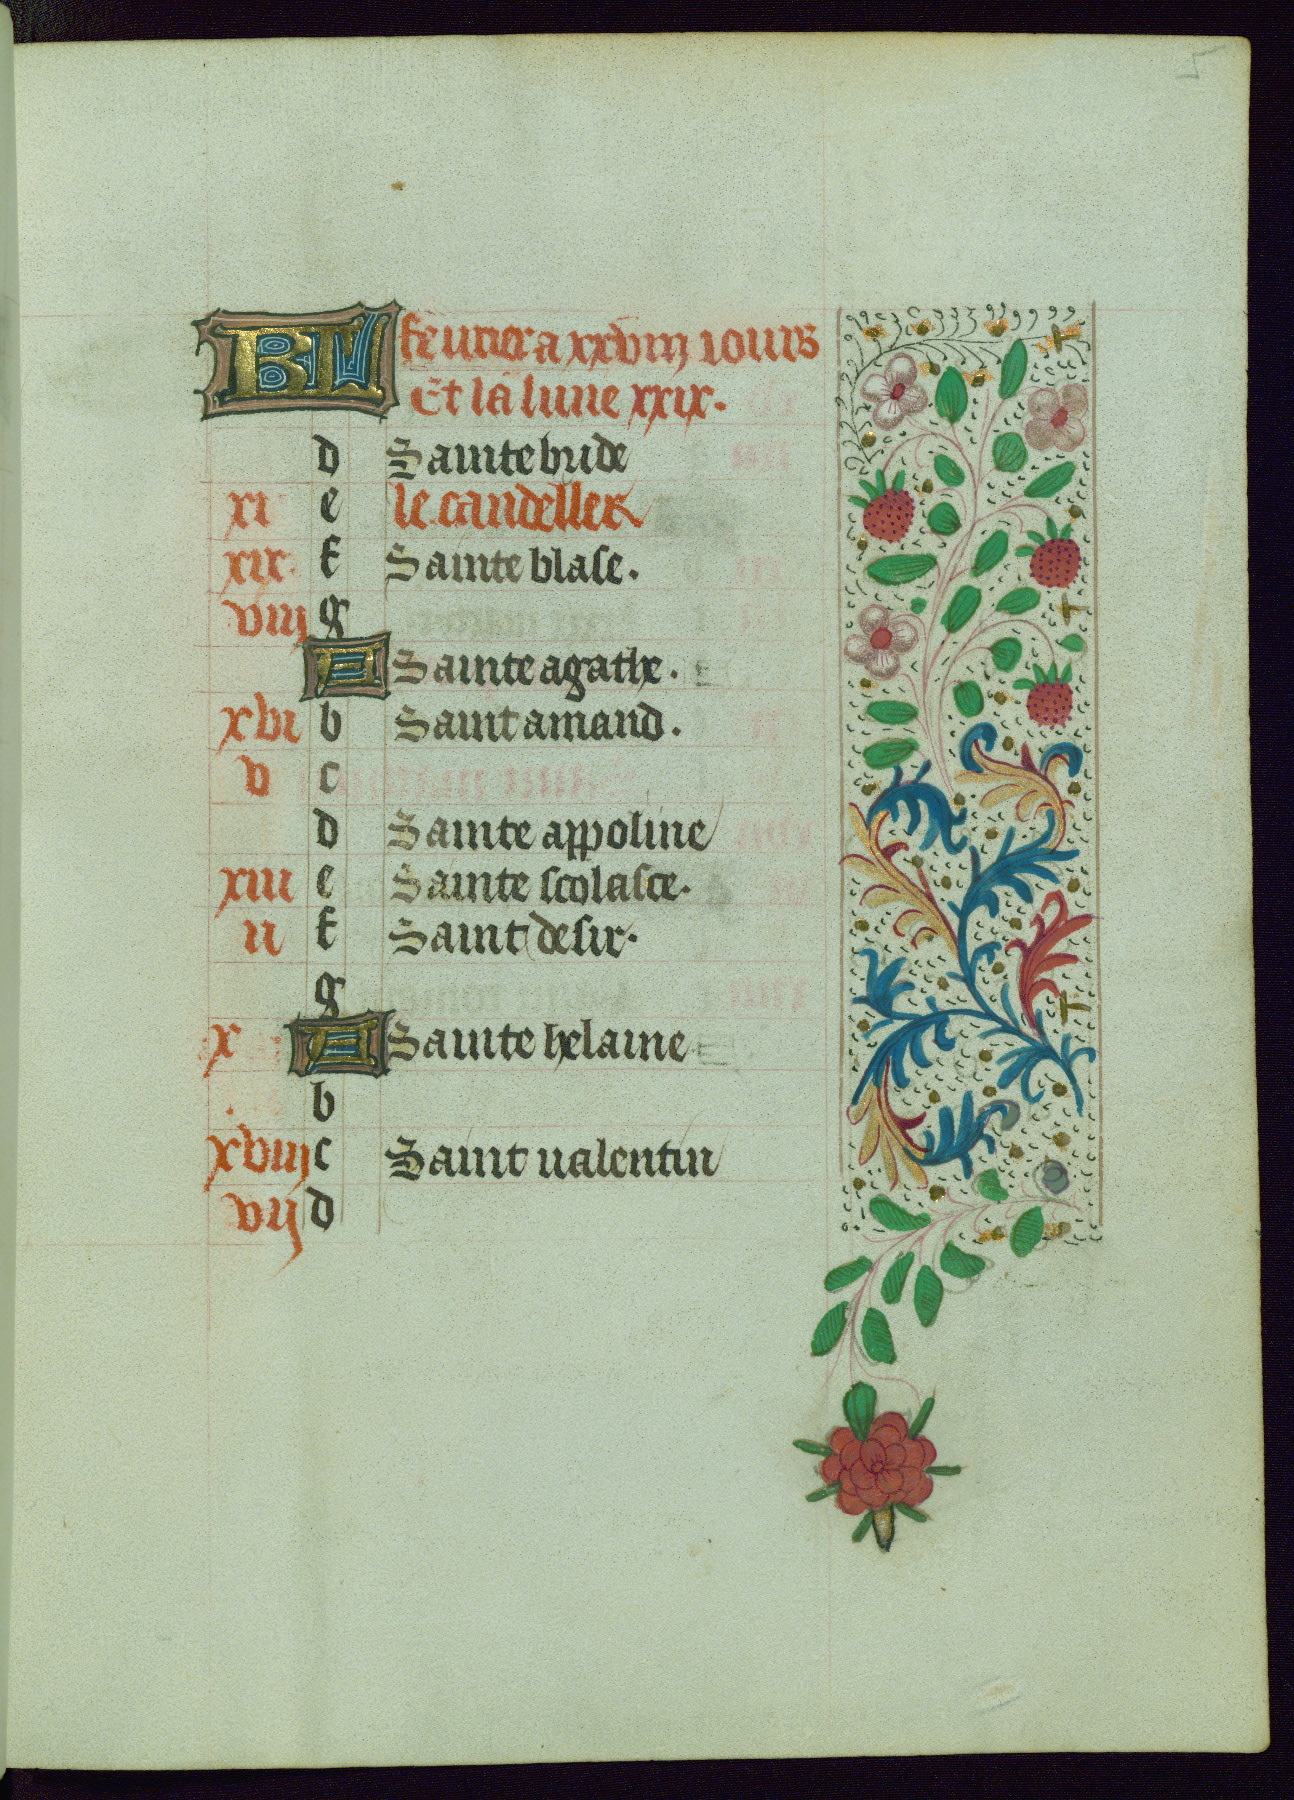 KL feurier a xxviij iours
Et la lune xxix.
d Sainte bride
xi e le candeller
xix f Sainte blase.
viij g
A Sainte agathe.
xvi b Saint amand.
v c
d Sainte appoline
xiii e Sainte scolasce.
ii f Saint desir.
g
x A Sainte helaine
b
xviij c Saint ualentin
vij d